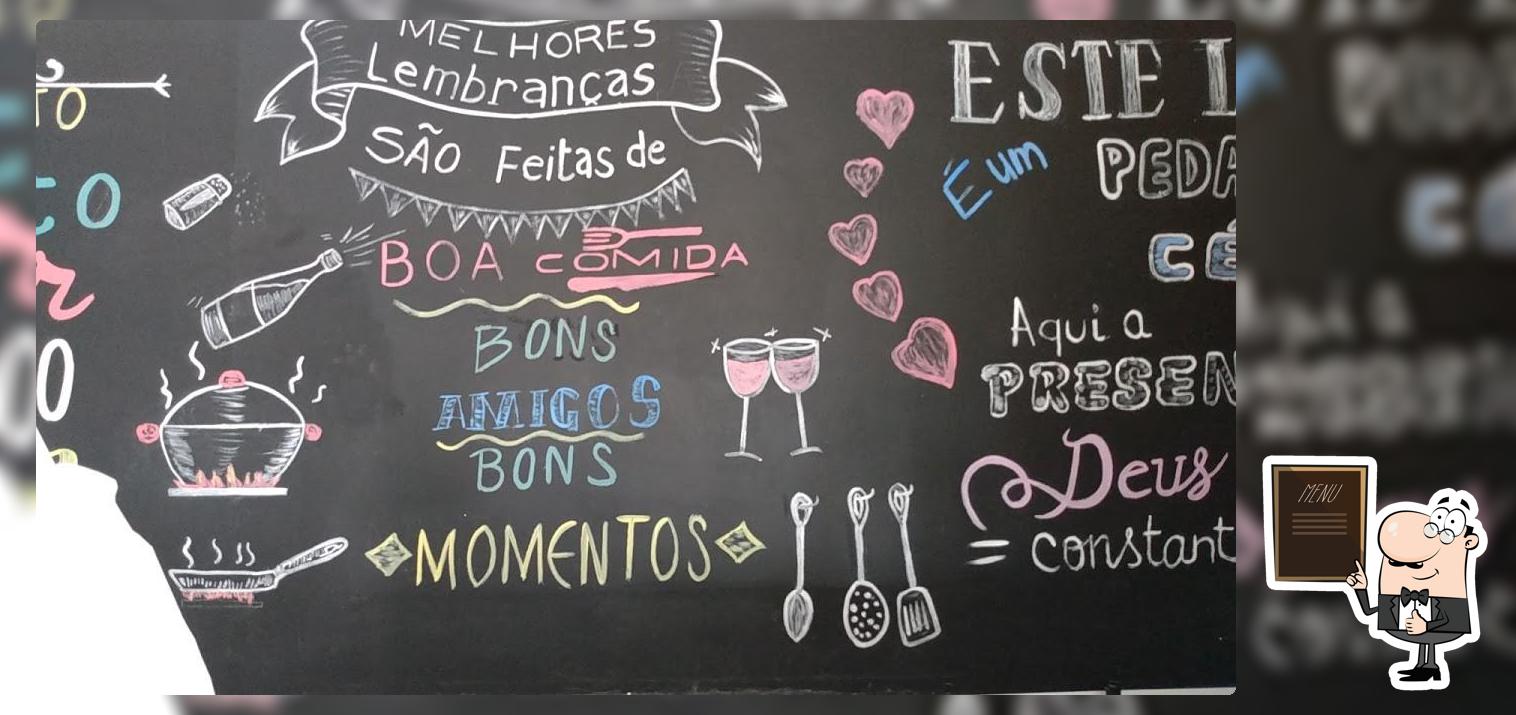 TO
to
r
O
MELHORES
Lembranças
SÃO Feitas de
BOA COMIDA
BONS
AMIGOS
BONS
MOMENTOS
ESTE L
É um PEDA
CÉ
Aqui a
PRESEN
Deus
= constant
MENU